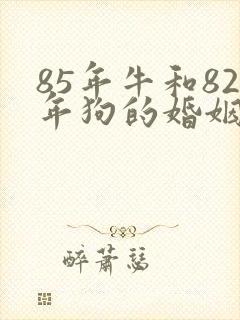 85年牛和82
年狗的婚姻
醉萧瑟